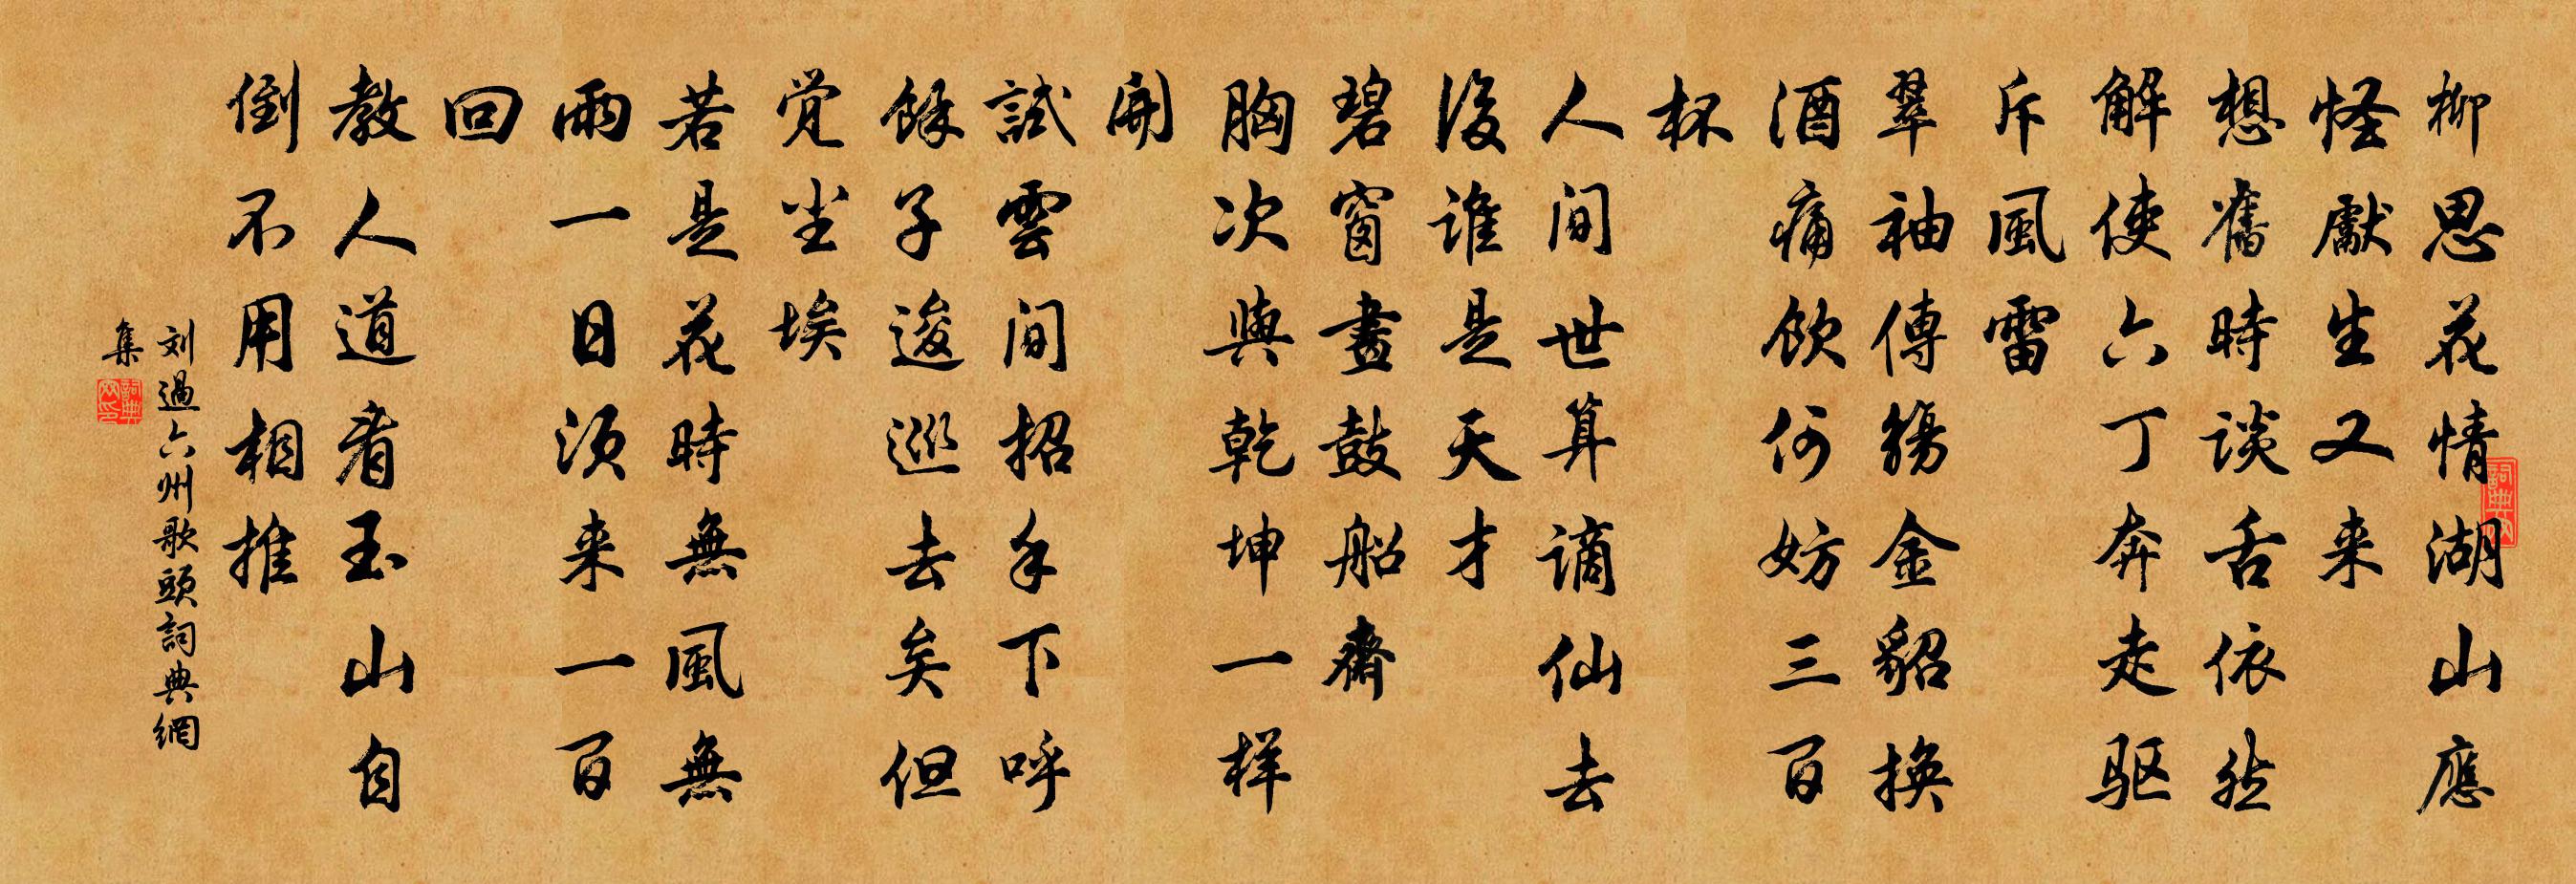 柳思花情湖山應
怪獻生又来
想舊時談舌依然
解使六丁奔走驱
斥風雷
翠袖傳觴金貂換
酒痛飲何妨三百
杯
人间世算谪仙去
後谁是天才
碧窗畫鼓船齋
胸次與乾坤一样
開
試雲间招手下呼
餘子逡巡去矣但
覚尘埃
若是花時無風無
雨一日須来一百
回
教人道看玉山自
倒不用相推
刘過六州歌頭詞典網
集
詞典網
詞典網印